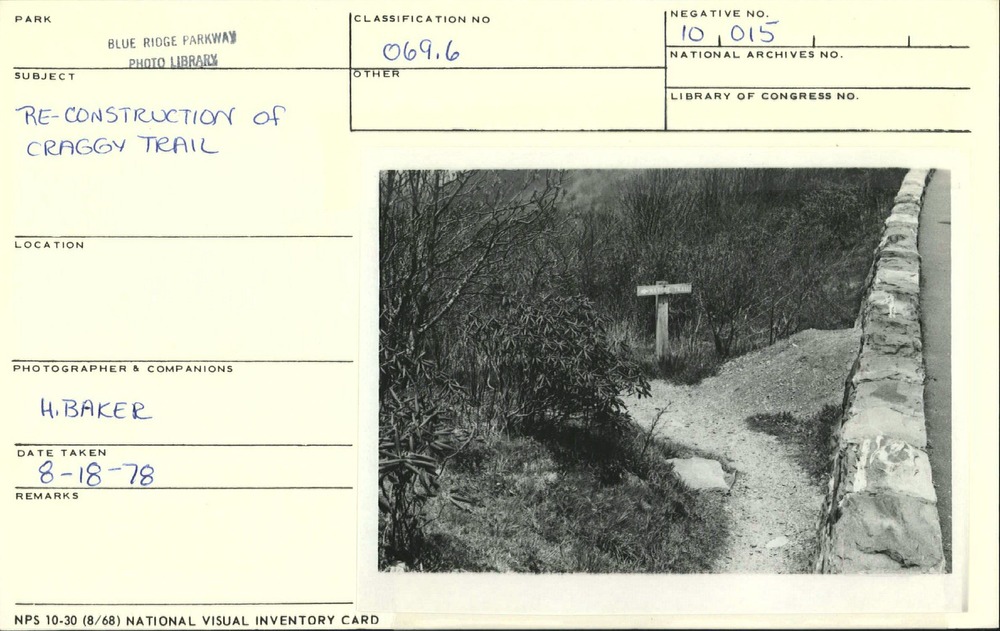 PARK
BLUE RIDGE PARKWAY
PHOTO LIBRARY
CLASSIFICATION NO
069.6
NEGATIVE NO.
10 015
NATIONAL ARCHIVES NO.
LIBRARY OF CONGRESS NO.
OTHER
SUBJECT
RE-CONSTRUCTION OF
CRAGGY TRAIL
LOCATION
PHOTOGRAPHER & COMPANIONS
H. BAKER
DATE TAKEN
8-18-78
REMARKS
NPS 10-30 (8/68) NATIONAL VISUAL INVENTORY CARD